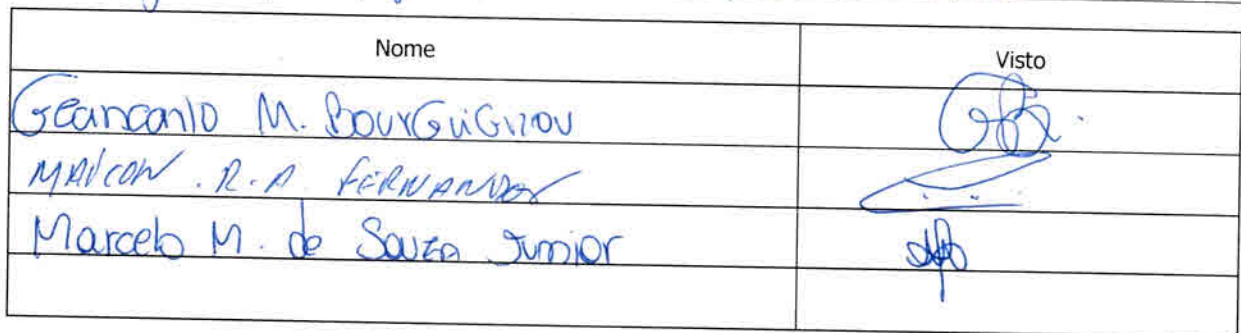 Nome Visto
Geancarlo M. BourGuiGnon
MAICON . R. A. FERNANDES
Marcelo M. de Souza Junior